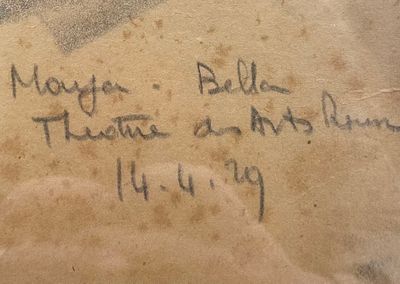 Bella
Theatre des Arts Rouen
14.4.29